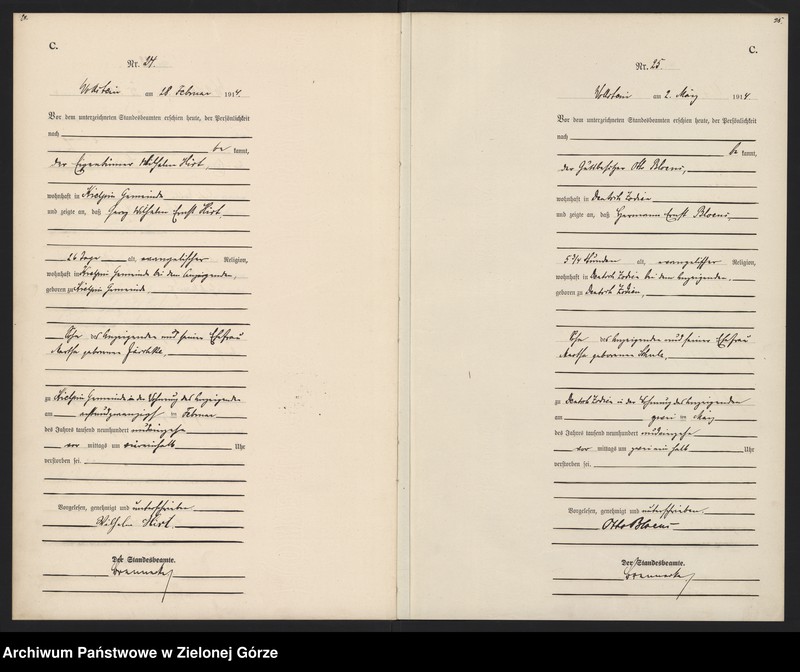 24.
C.
Nr. 24.
Wollstein am 28. Februar 1914.
Vor dem unterzeichneten Standesbeamten erschien heute, der Persönlichkeit
nach
be kannt,
der Eigentümer Wilhelm Hirt,
wohnhaft in Kielpin Gemeinde
und zeigte an, daß Georg Wilhelm Ernst Hirt,
26 Tage alt, evangelischer Religion,
wohnhaft in Kielpin Gemeinde bei dem Anzeigenden,
geboren zu Kielpin Gemeinde,
Sohn des Anzeigenden und seiner Ehefrau
Martha geborenen
zu Kielpin Gemeinde in der Wohnung des Anzeigenden
am achtundzwanzigsten Februar
des Jahres tausend neunhundert vierzehn
vor mittags um Uhr
verstorben sei.
Vorgelesen, genehmigt und unterschrieben
Wilhelm Hirt
Der Standesbeamte.
25.
C.
Nr. 25.
Wollstein am 2. März 1914.
Vor dem unterzeichneten Standesbeamten erschien heute, der Persönlichkeit
nach
be kannt,
der Otto Bloens,
wohnhaft in Deutsch
und zeigte an, daß Hermann Ernst Bloens,
5 3/4 Stunden alt, evangelischer Religion,
wohnhaft in Deutsch bei dem Anzeigenden,
geboren zu Deutsch
Sohn des Anzeigenden und seiner Ehefrau
Martha geborenen
zu Deutsch in der Wohnung des Anzeigenden
am zwei ten März
des Jahres tausend neunhundert vierzehn
vor mittags um Uhr
verstorben sei.
Vorgelesen, genehmigt und unterschrieben
Otto Bloens
Der Standesbeamte.
Archiwum Państwowe w Zielonej Górze